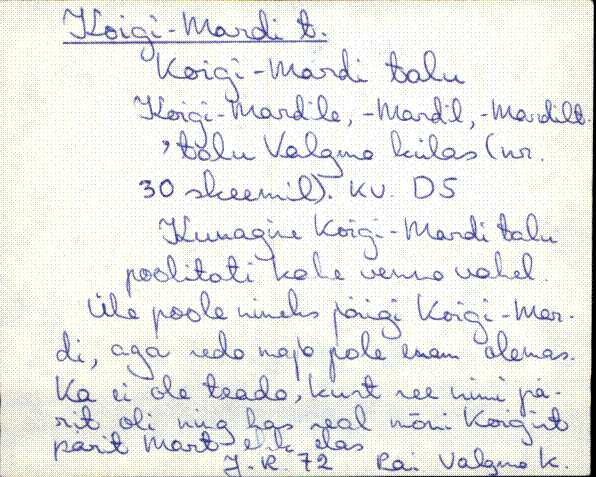 Koigi-Mardi t.
Koigi-Mardi talu
Koigi-Mardile, -Mardil, -Mardilt.
'talu Valgma külas (nr.
30 skeemil). KV. D5
Kunagine Koigi-Mardi talu
poolitati kahe venna vahel.
Ühe poole nimeks jäigi Koigi-Mar-
di, aga seda maja pole enam olemas.
Ka ei ole teada, kust see nimi pä-
rit oli ning kas seal mõni Koigist
pärit Mart elas
J. R. 72 Pai Valgma k.